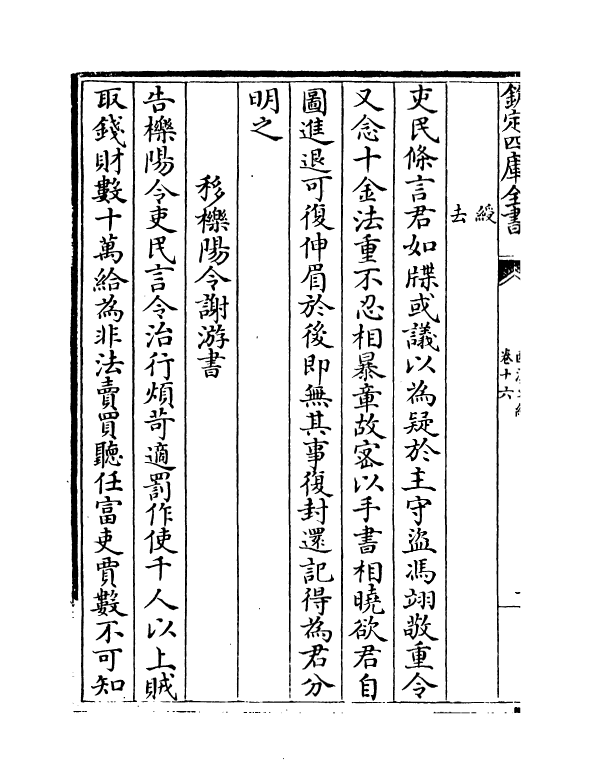 欽定四庫全書
卷十六
綬
去
吏民條言君如牒或議以為疑於主守盜馮翊敬重令
又念十金法重不忍相暴章故密以手書相曉欲君自
圖進退可復伸眉於後即無其事復封還記得為君分
明之
移櫟陽令謝游書
告櫟陽令吏民言令治行煩苛適罰作使千人以上賊
取錢財數十萬給為非法賣買聽任富吏賈數不可知